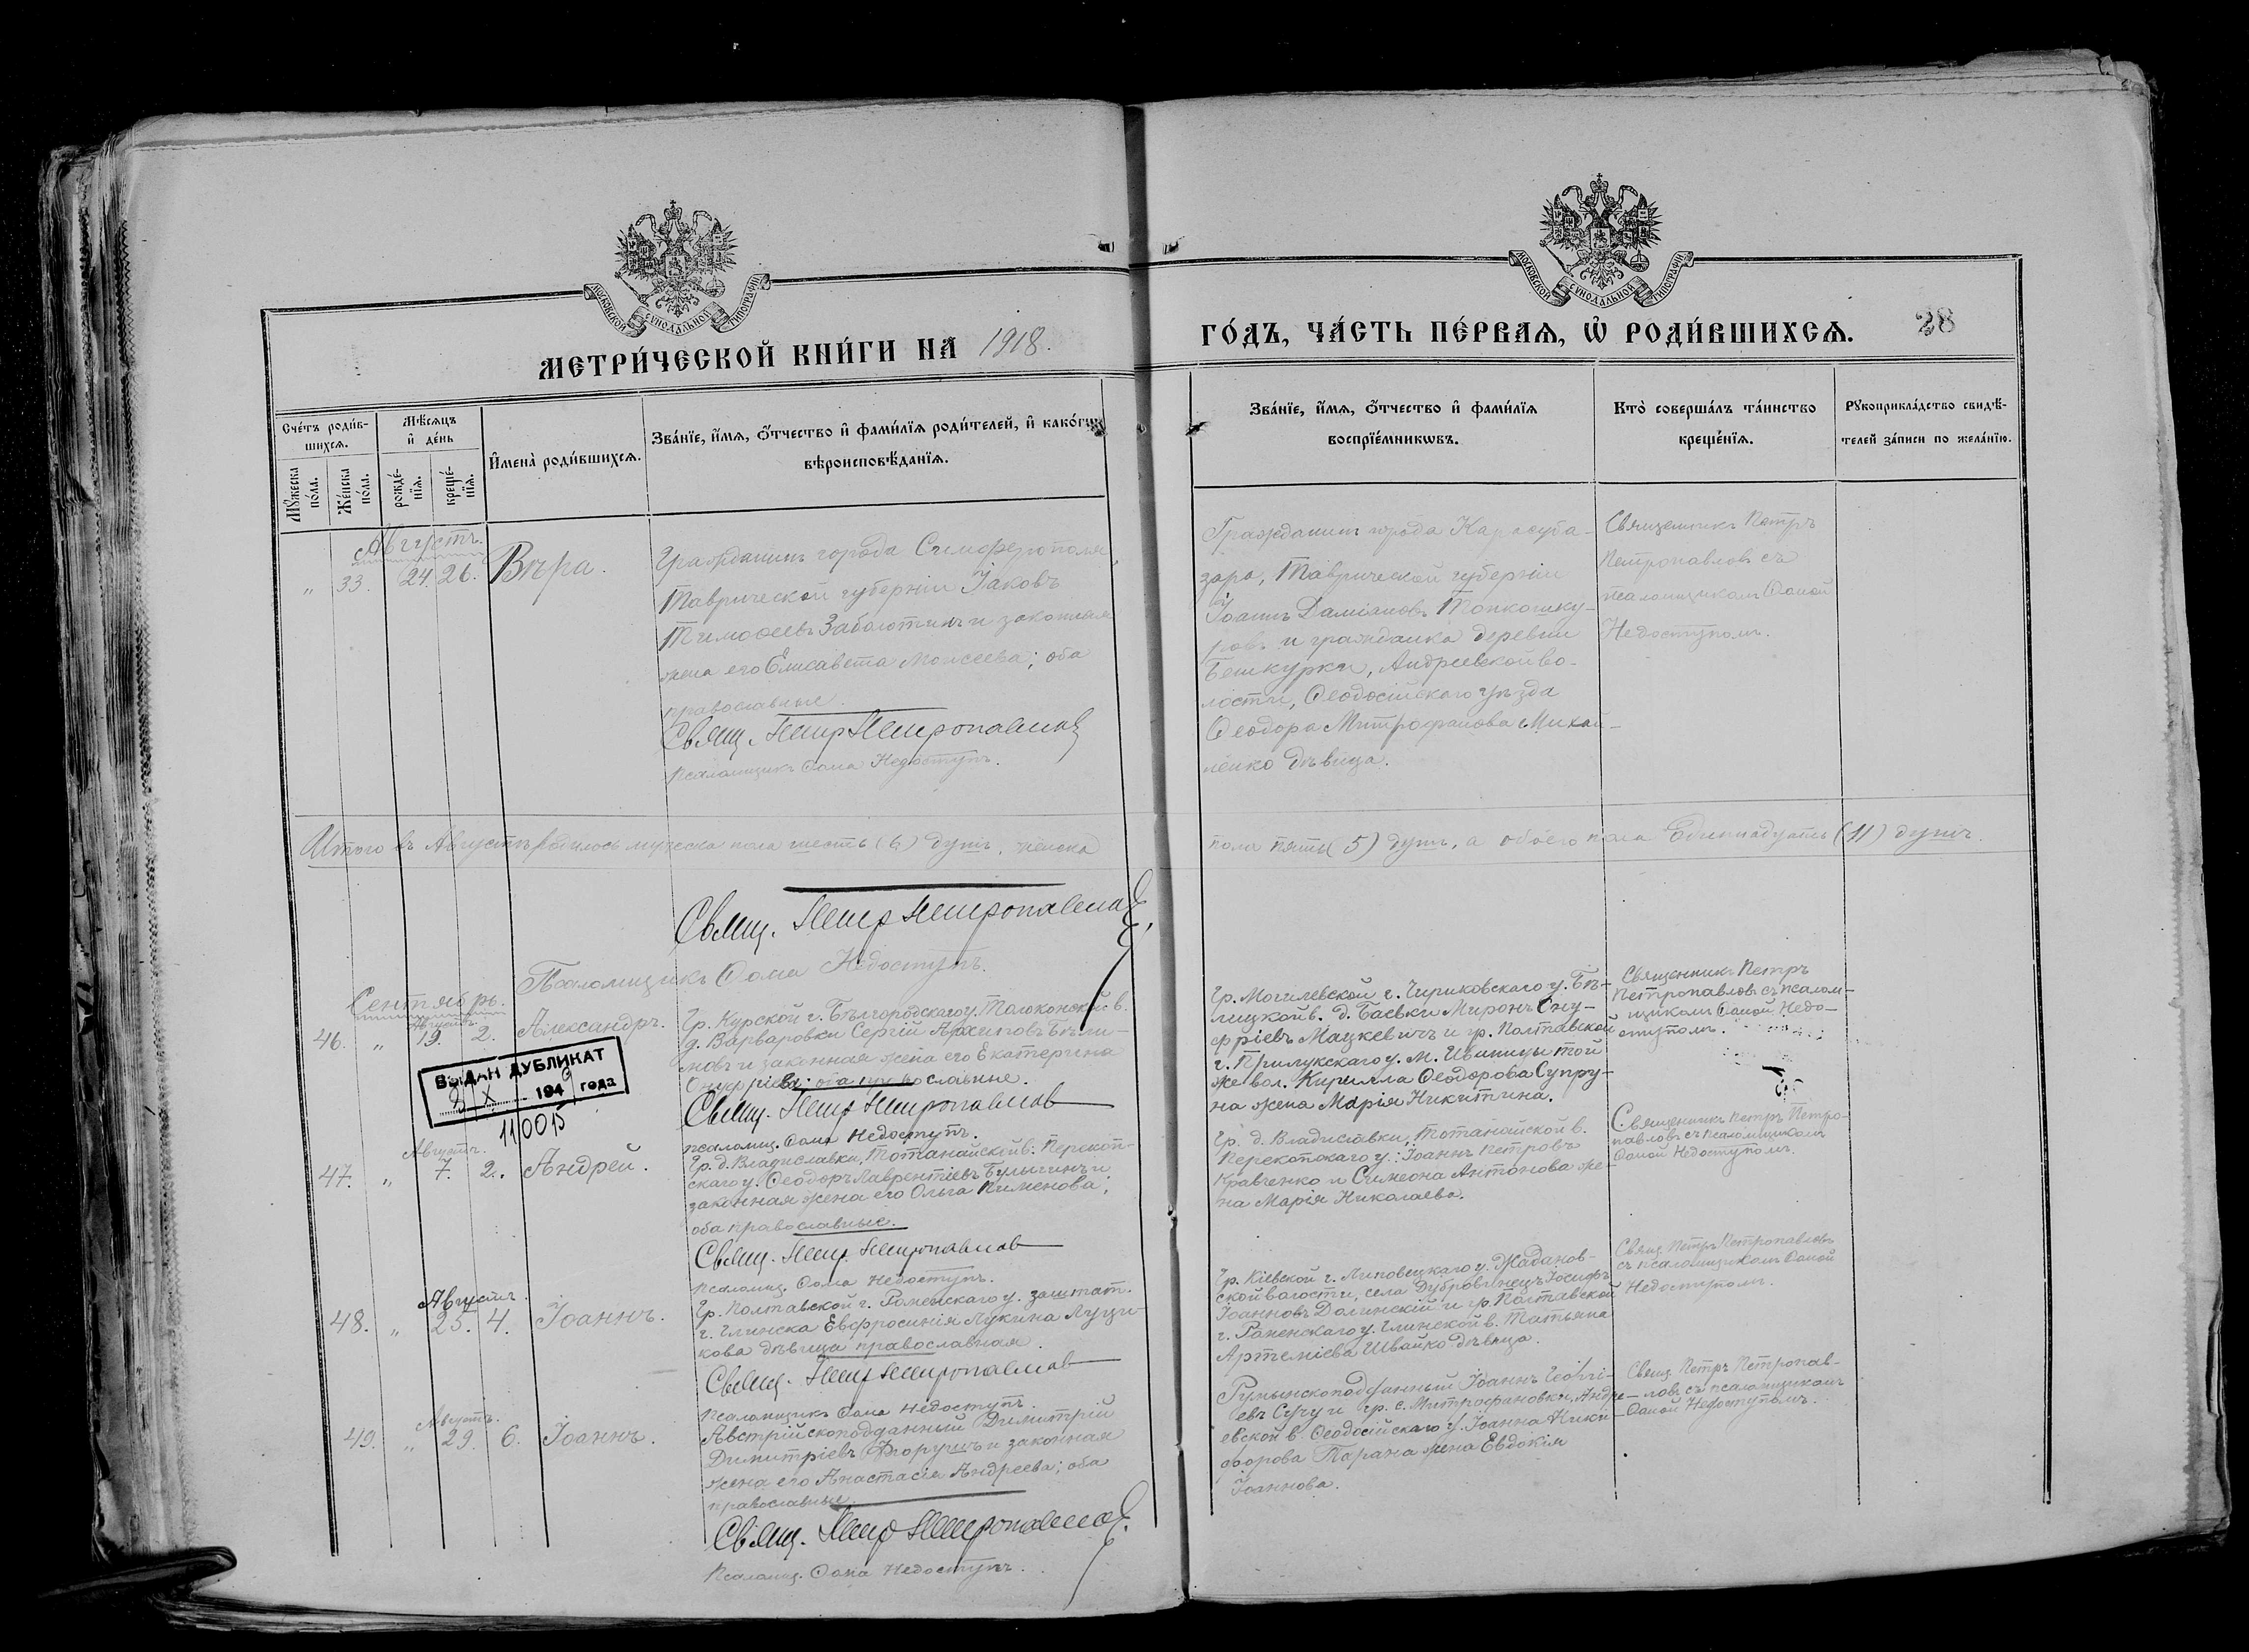 МОСКОВСКОЙ СУНОДАЛЬНОЙ ТИПОГРАФІИ
МОСКОВСКОЙ СУНОДАЛЬНОЙ ТИПОГРАФІИ
МЕТРИ́ЧЕСКОЙ КНИ́ГИ НА̀ 1918.
ГО́ДЪ, ЧА́СТЬ ПЕ́РВАѦ, Ѡ҆ РОДИ́ВШИХСѦ.
28
Сче́тъ роди́в-
шихсѧ.
Мѣ́сѧцъ
и҆ де́нь
Мꙋ́жеска
по́ла.
Же́нска
по́ла.
рожде́-
нїѧ.
креще́-
нїѧ.
И҆мена̀ роди́вшихсѧ.
Зва́нїе, и҆́мѧ, ѻ҆́тчество и҆ фами́лїѧ роди́телей, и҆ како́гѡ
вѣроисповѣ́данїѧ.
Зва́нїе, и҆́мѧ, ѻ҆́тчество и҆ фами́лїѧ
воспрїе́мникѡвъ.
Кто̀ соверша́лъ та́инство
креще́нїѧ.
Рꙋкоприкла́дство свидѣ́-
телей за́писи по жела́нїю.
Августъ.
„ 33. 24. 26. Вѣра.
Гражданинъ города Симферополя,
Таврической губерніи Іаковъ
Тимоѳеевъ Заболотинъ и законная
жена его Елисавета Моисеева; оба
православные.
Свящ. Петр Петропавлов
Псаломщикъ Ѳома Недоступъ.
Гражданинъ города Карасуба-
зара, Таврической губерніи
Іоаннъ Даміановъ
ровъ и гражданка деревни
Бешкурки, Андреевской во-
лости, Ѳеодосійскаго уѣзда
Ѳеодора Митрофанова Михай-
ленко дѣвица.
Священникъ Петръ
Петропавловъ съ
псаломщикомъ Ѳомой
Недоступомъ.
Итого въ Августѣ родилось мужеска пола шесть (6) душъ, женска
пола пять (5) душъ, а обоего пола одиннадцать (11) душъ.
Свящ. Петр Петропавлов
Псаломщикъ Ѳома Недоступъ.
Сентябрь.
Августъ.
46. „ 19. 2. Александръ.
Гр. Курской г. Бѣлгородскаго у. Толоконской в.
д. Варваровки Сергій Архиповъ Бѣли-
новъ и законная жена его Екатерина
Онуфріева; оба православные.
Свящ. Петр Петропавлов
псаломщ. Ѳома Недоступъ.
Гр. Могилевской г. Чириковскаго у. Бѣ-
лицкой в. д. Баевки Миронъ Ону-
фріевъ Мацкевичъ и гр. Полтавской
г. Прилукскаго у. м. Иваницы той
же вол. Кирилла Ѳеодорова Супру-
на жена Марія Никитина.
Священникъ Петръ
Петропавловъ съ псалом-
щикомъ Ѳомой Недо-
ступомъ.
ВЫДАН ДУБЛИКАТ
X 1949 года
Августъ.
47. „ 7. 2. Андрей.
Гр. д. Владиславки, Тотанайской в. Перекоп-
скаго у. Ѳеодоръ Лаврентіевъ Булыгинъ и
законная жена его Ольга Пименова;
оба православные.
Свящ. Петр Петропавлов
Псаломщ. Ѳома Недоступъ.
Гр. д. Владиславки, Тотанайской в.
Перекопскаго у.: Іоаннъ Петровъ
Кравченко и Симеона Антонова же-
на Марія Николаева.
Священникъ Петръ Петро-
павловъ съ псаломщикомъ
Ѳомой Недоступомъ.
Августъ.
48. „ 25. 4. Іоаннъ.
Гр. Полтавской г. Роменскаго у. заштат.
г. Глинска Евфросинія Лукина Луци-
кова дѣвица православная.
Свящ. Петр Петропавлов
Псаломщикъ Ѳома Недоступъ.
Гр. Кіевской г. Липовецкаго у. Жаданов-
ской волости, села Дубровинецъ Іосифъ
Іоанновъ Долинскій и гр. Полтавской
г. Роменскаго у. Глинской в. Татьяна
Артеміева Швайко дѣвица.
Свящ. Петръ Петропавловъ
съ псаломщикомъ Ѳомой
Недоступомъ.
Августъ.
49. „ 29. 6. Іоаннъ.
Австрійскоподданный Димитрій
Димитріевъ и законная
жена его Анастасія Андреева; оба
православные.
Свящ. Петр Петропавлов
Псаломщ. Ѳома Недоступъ.
Румынскоподданный Іоаннъ Георгі-
евъ и гр. с. Митрофановки, Андре-
евской в. Ѳеодосійскаго у. Іоанна Ники-
форова Тарана жена Евдокія
Іоаннова.
Свящ. Петръ Петропав-
ловъ съ псаломщикомъ
Ѳомой Недоступомъ.